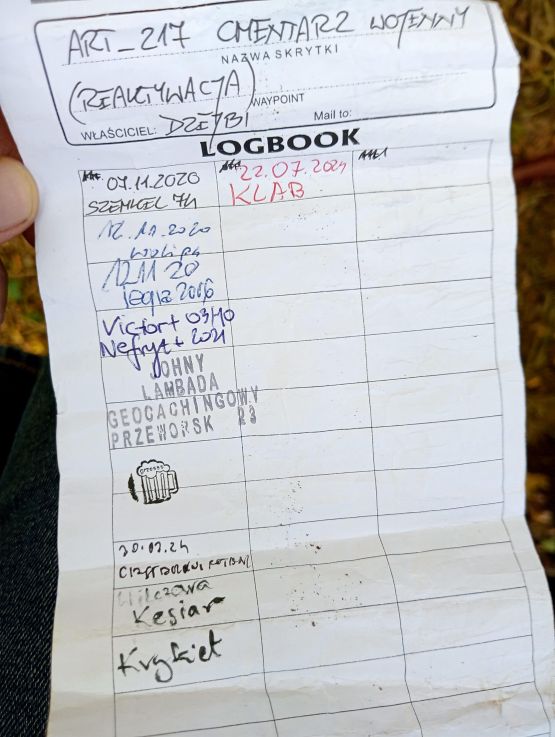 ART_217 CMENTARZ WOJENNY
NAZWA SKRYTKI
(REAKTYWACJA)
WAYPOINT
WŁAŚCICIEL: DZEJBI
Mail to:
LOGBOOK
07.11.2020
SZEMKEL 74
12.11.2020
12.11 20
legia 2016
Victort 03/10
Nefryt + 2021
JOHNY
LAMBADA
GEOCACHINGOWY
PRZEWORSK 23
20.07.24
Wilczava
Kesiar
Krykiet
22.07.2024
KLAB